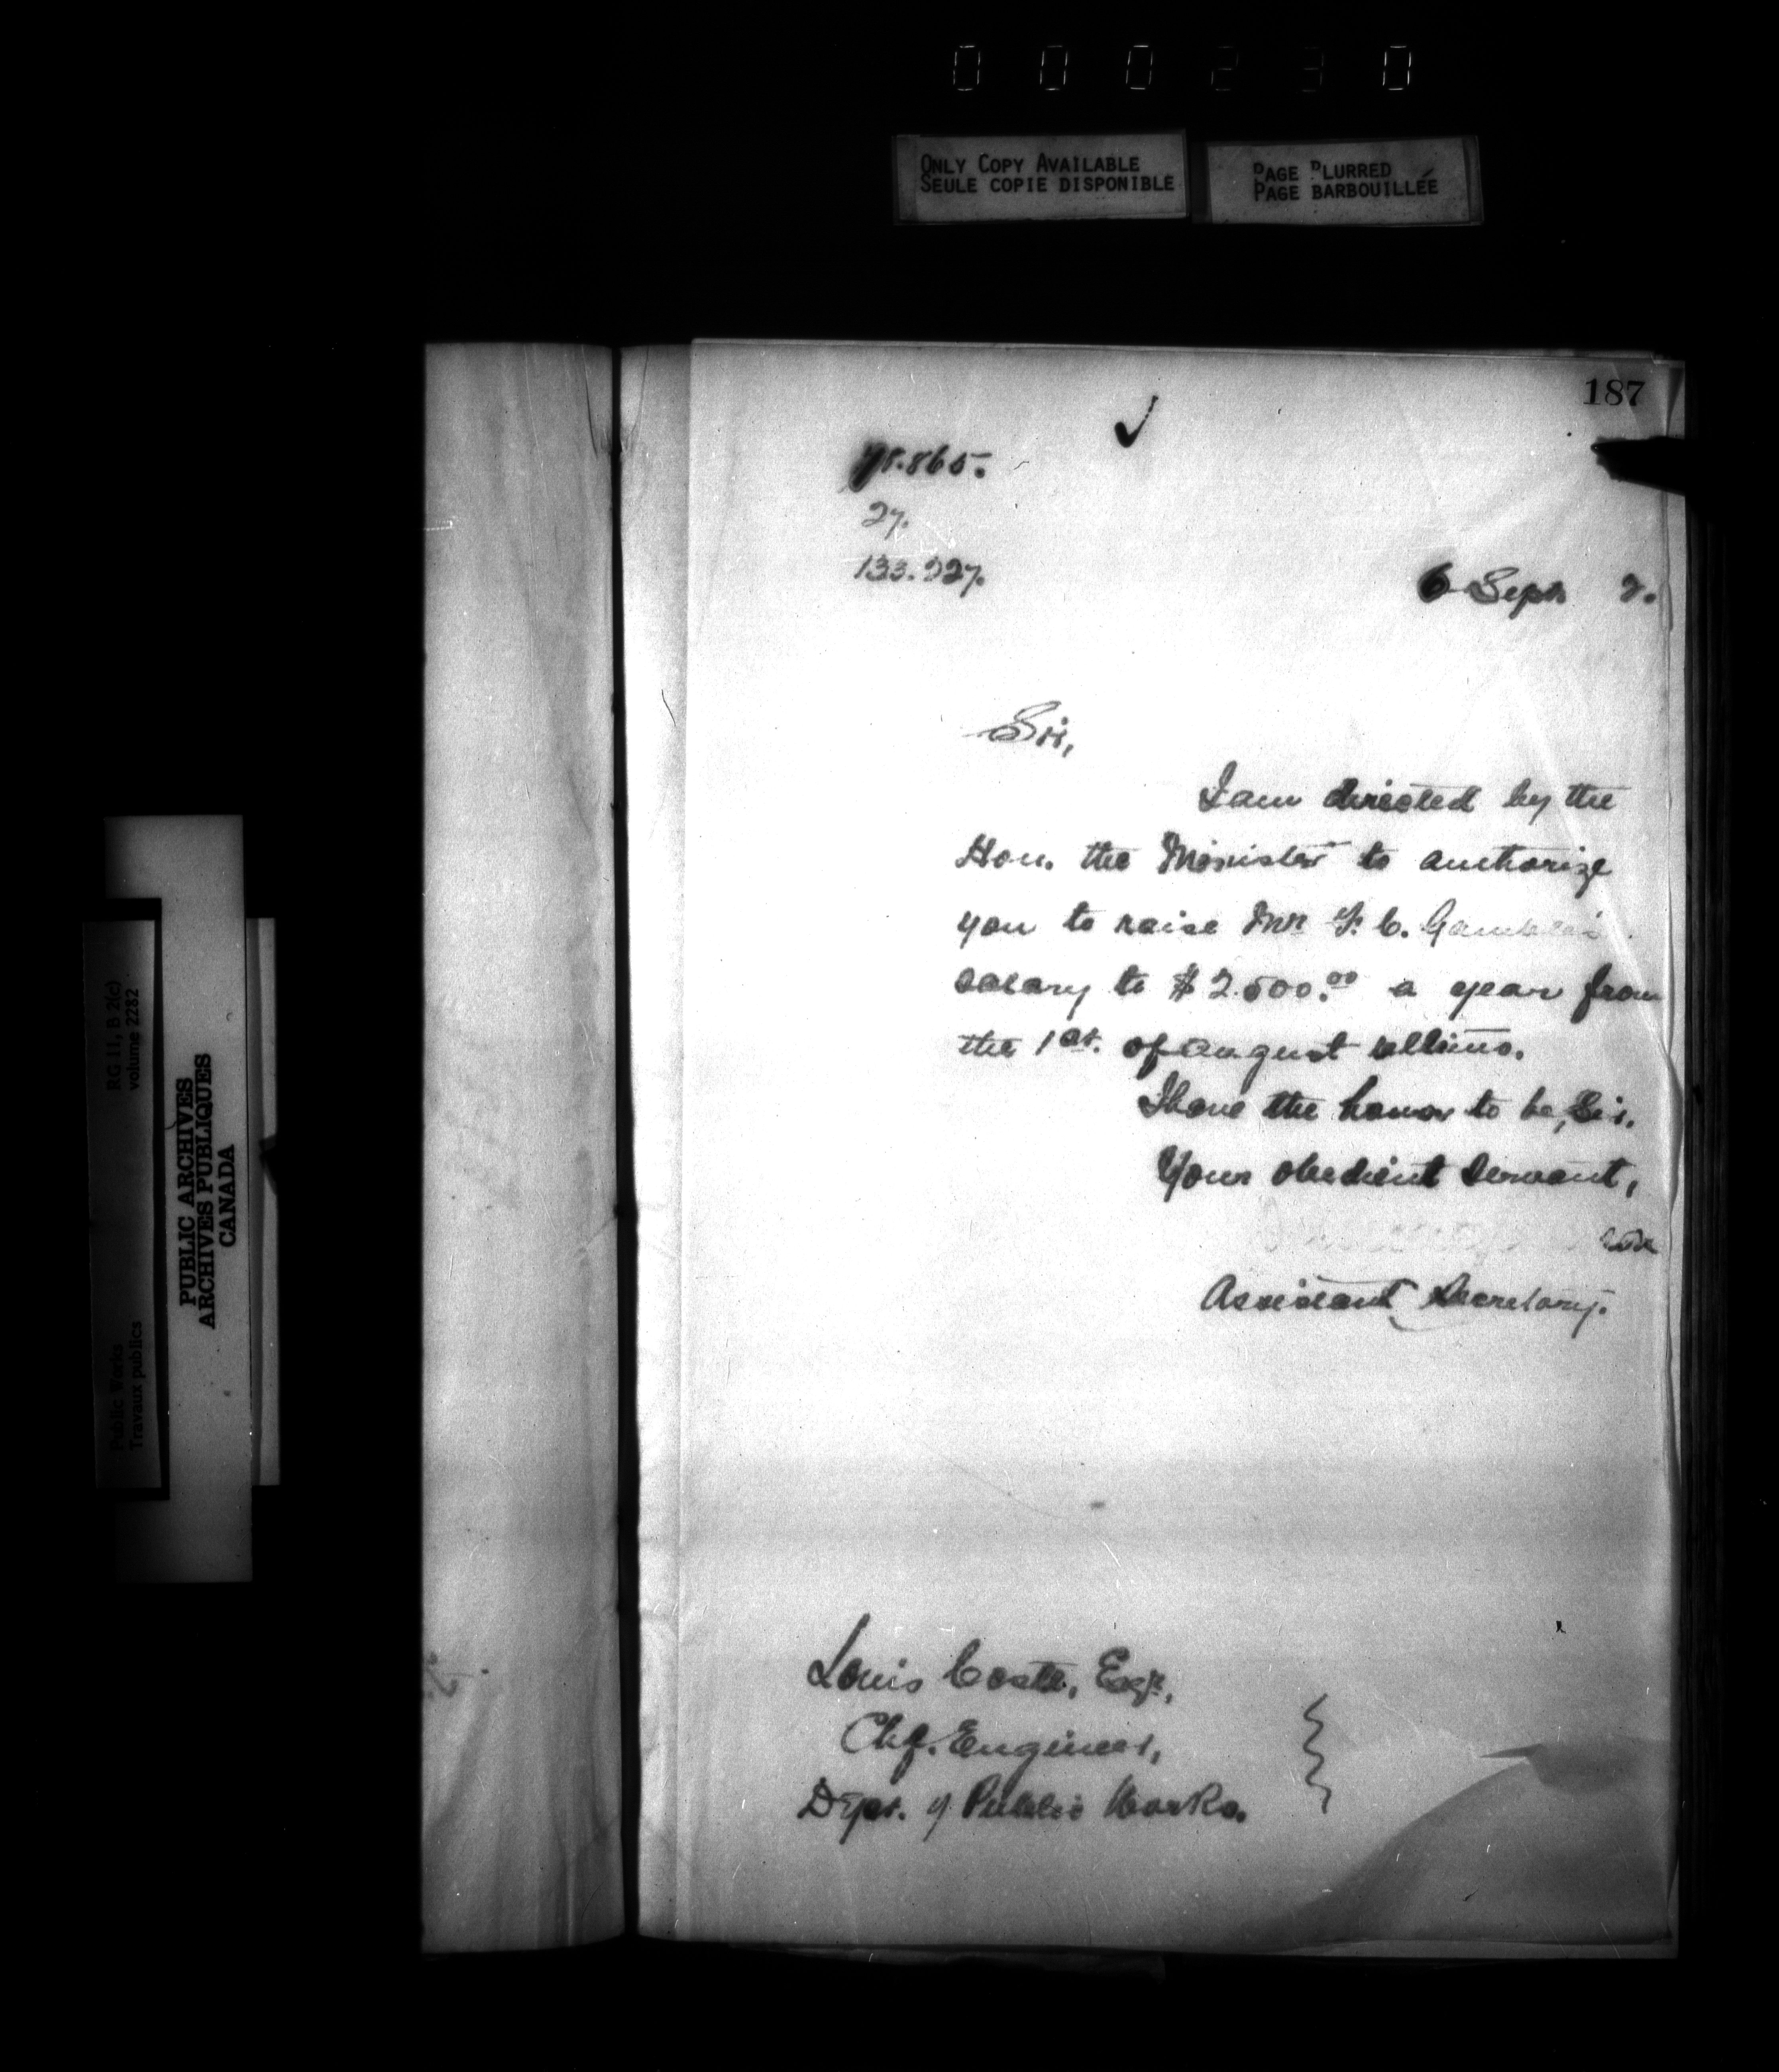 000230
ONLY COPY AVAILABLE
SEULE COPIE DISPONIBLE
PAGE BLURRED
PAGE BARBOUILLÉE
187
27.
133.227.
6 Sept 2.
Sir,
I am directed by the
Hon. the Minister to authorize
you to raise Mr F. C. Gamble's
salary to $2.500.00 a year from
the 1st. of August ultimo.
I have the honor to be, Sir.
Your obedient servant,
Assistant Secretary.
Louis Coste, Esqr.,
Chf. Engineer,
Dept. of Public Works.
RG 11, B 2(c)
volume 2282
Public Works
Travaux publics
PUBLIC ARCHIVES
ARCHIVES PUBLIQUES
CANADA